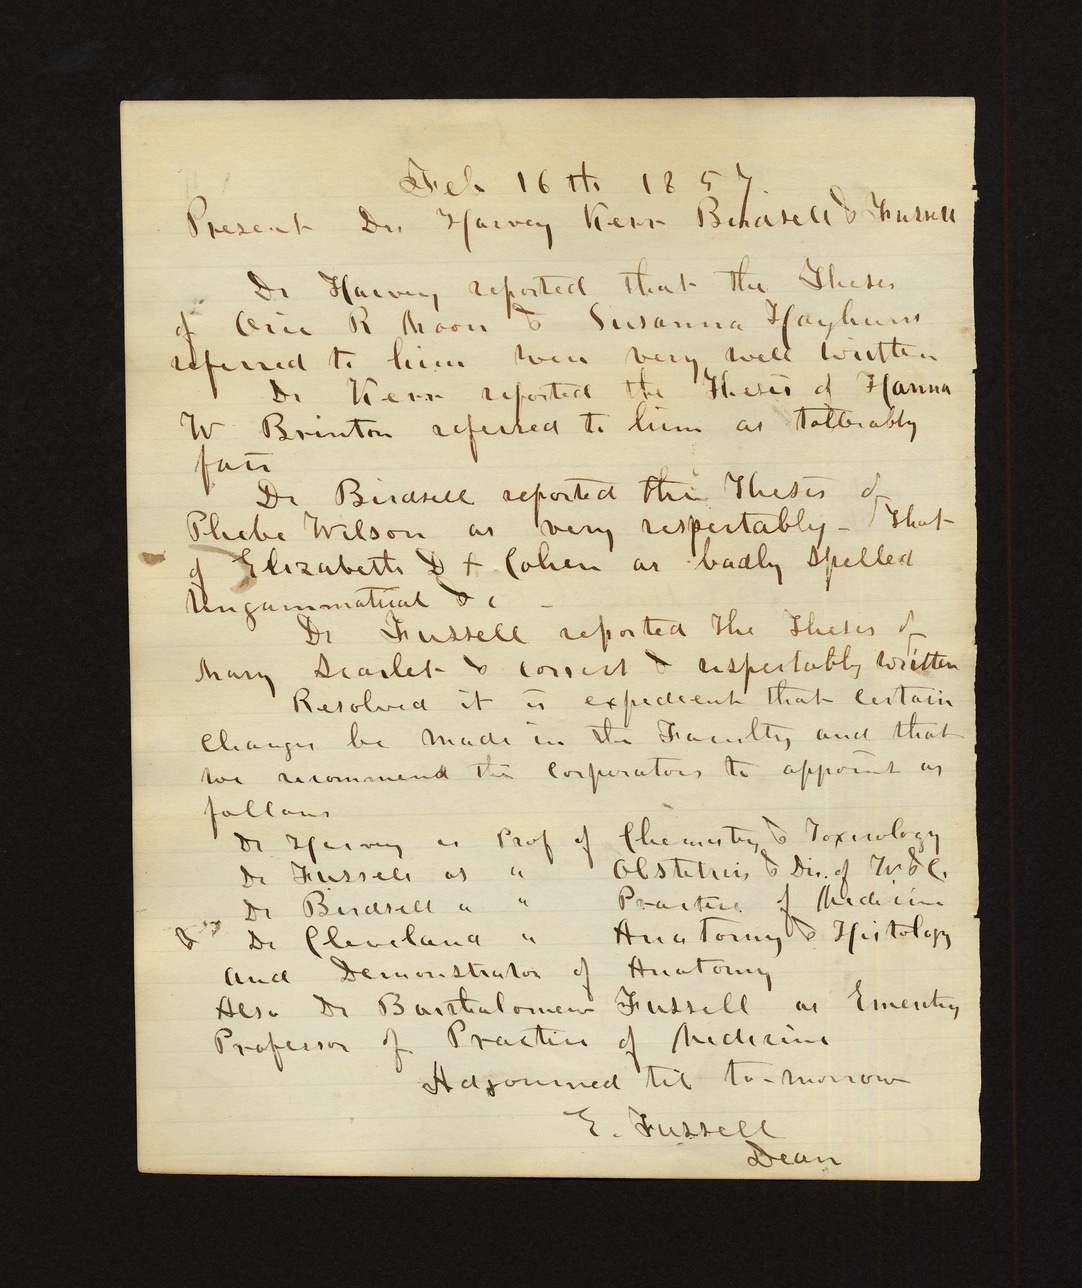 Feb 16th 1857.
Present Drs Harvey Kerr Birdsell & Fussell
Dr Harvey reported that the Theses
of Orie R Moon & Susanna Hayhurst
referred to him were very well written
Dr Kerr reported the Thesis of Hanna
W Brinton referred to him as tollerably
fair
Dr Birdsell reported the Thesis of
Phebe Wilson as very respectably - That
of Elizabeth D A Cohen as badly spelled
Ungammatical &c -
Dr Fussell reported the Theses of
Mary Scarlet & correct & respectably written
Resolved it is expedient that certain
changes be made in the Faculty and that
we recommend the Corporators to appoint as
follows
Dr Harvey as Prof of Chemistry & Toxicology
Dr Fussell as " Obstetrics & Dis. of W & C.
Dr Birdsell " " Practice of Medicine
& Dr Cleveland " Anatomy & Histology
and Demonstrator of Anatomy
Also Dr Bartholomew Fussell as Emeritus
Professor of Practice of Medicine
Adjourned til to-morrow
E. Fussell
Dean